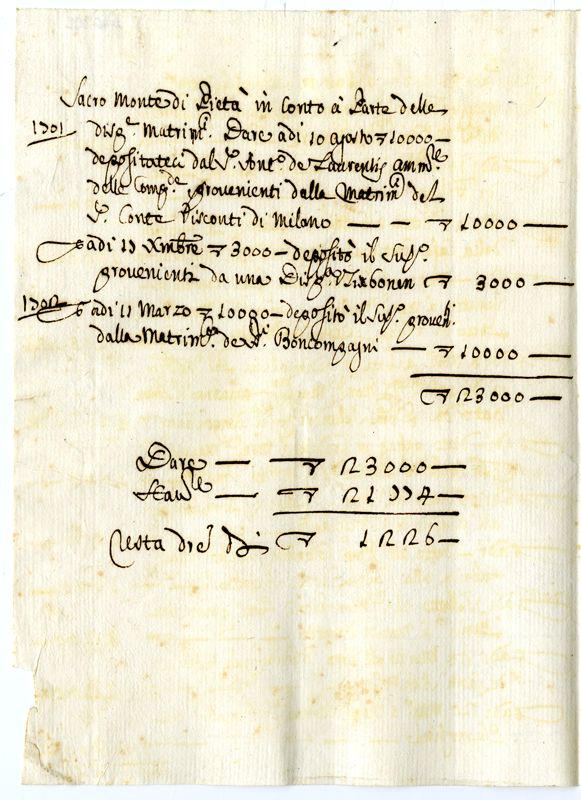 Sacro Monte di Pietà in Conto à Parte delle
1701 Disp.e Matrim.li Dare adi 10 agosto ∇ 10000 —
depositateci dal S.r Ant.o de Laurentis Amm.re
delle Comp.de provenienti dalla Matrim.le del
S.r Conte Visconti di Milano — — ∇ 10000 —
E adi 19 Xmbre ∇ 3000 — depositò il Sud.o
provenienti da una Disp.a ∇ 3000 —
1702 E adi 11 Marzo ∇ 10000 — depositò il Sud.o proven.ti
dalla Matrim.le de SS.ri Boncompagni — ∇ 10000 —
∇ 23000 —
Dare — ∇ 23000 —
Hav.re — ∇ 21774 —
Resta ∇ 1226 —